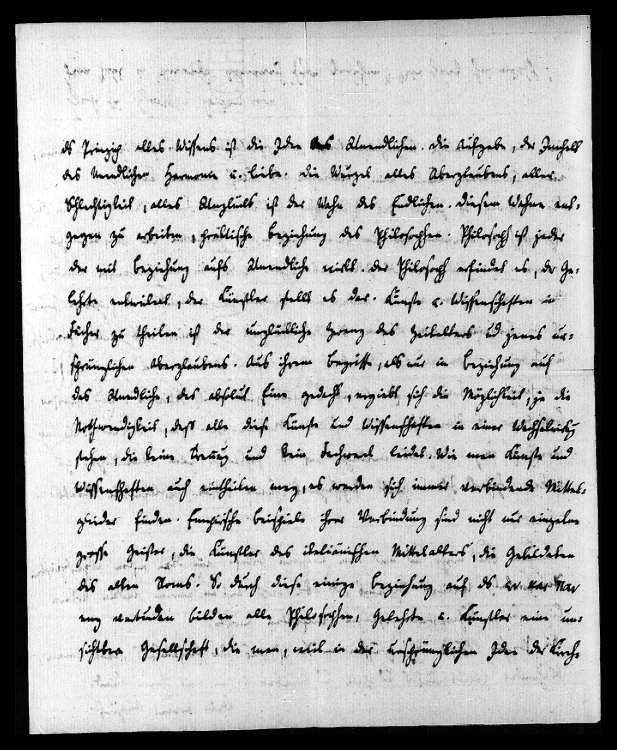 ds Prinzip alles Wissens ist die Idee des Unendlichen. Die Aufgabe, der Innhalt
des Unendlichen Harmonie u. Liebe. Die Wurzel alles Aberglaubens, aller
Schlechtigkeit, alles Unglücks ist der Wahn des Endlichen. Diesem Wahne ent-
gegen zu arbeiten, praktische Beziehung des Philosophen. Philosoph ist jeder
der mit Beziehung aufs Unendliche wirkt. Der Philosoph erfindet es, der Ge-
lehrte entwickelt, der Künstler stellt es dar. Künste u. Wissenschaften in
Fächer zu theilen ist der unglückliche Hang des Zeitalters und jenes ur-
sprünglichen Aberglaubens. Aus ihrem Begriffe, als nur in Beziehung auf
das Unendliche, das absolut Eine gedacht, ergiebt sich die Möglichkeit, ja die
Nothwendigkeit, daß alle diese Künste und Wissenschaften in einer Wechselwirkg
stehen, die keine Trennung und kein Fachwerk leidet. Wie man Künste und
Wissenschaften auch eintheilen mag, es werden sich immer verbindende Mittel-
glieder finden. Empirische Beispiele ihrer Verbindung sind nicht nur einzelne
grosse Geister, die Künstler des italiänischen Mittelalters, die Gebildeten
des alten Roms. So durch diese einzige Beziehung auf ds
eng verbunden bilden alle Philosophen, Gelehrte u. Künstler eine un-
sichtbare Gesellschaft, die man, weil in der ursprünglichen Idee der Kirch-